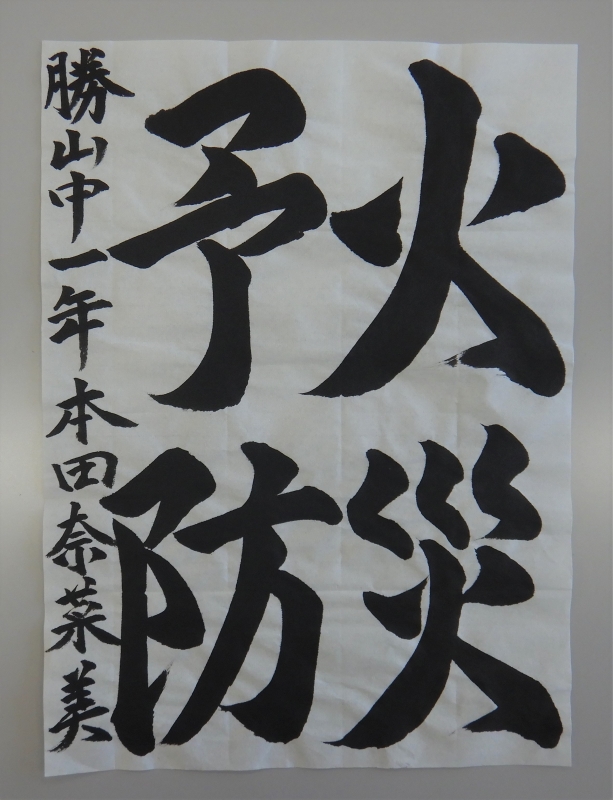 火災
予防
勝山中一年本田奈菜美